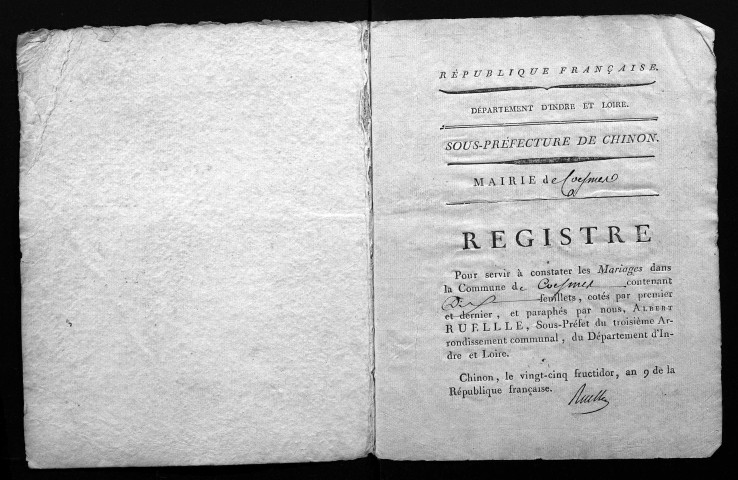 RÉPUBLIQUE FRANÇAISE.
DÉPARTEMENT D'INDRE ET LOIRE.
SOUS-PRÉFECTURE DE CHINON.
MAIRIE de Coesmes
REGISTRE
Pour servir à constater les Mariages dans
la Commune de Coesmes contenant
Dix feuillets, cotés par premier
et dernier, et paraphés par nous, ALBERT
RUELLLE, Sous-Préfet du troisième Ar-
rondissement communal, du Département d'In-
dre et Loire.
Chinon, le vingt-cinq fructidor, an 9 de la
République française.
Ruelle